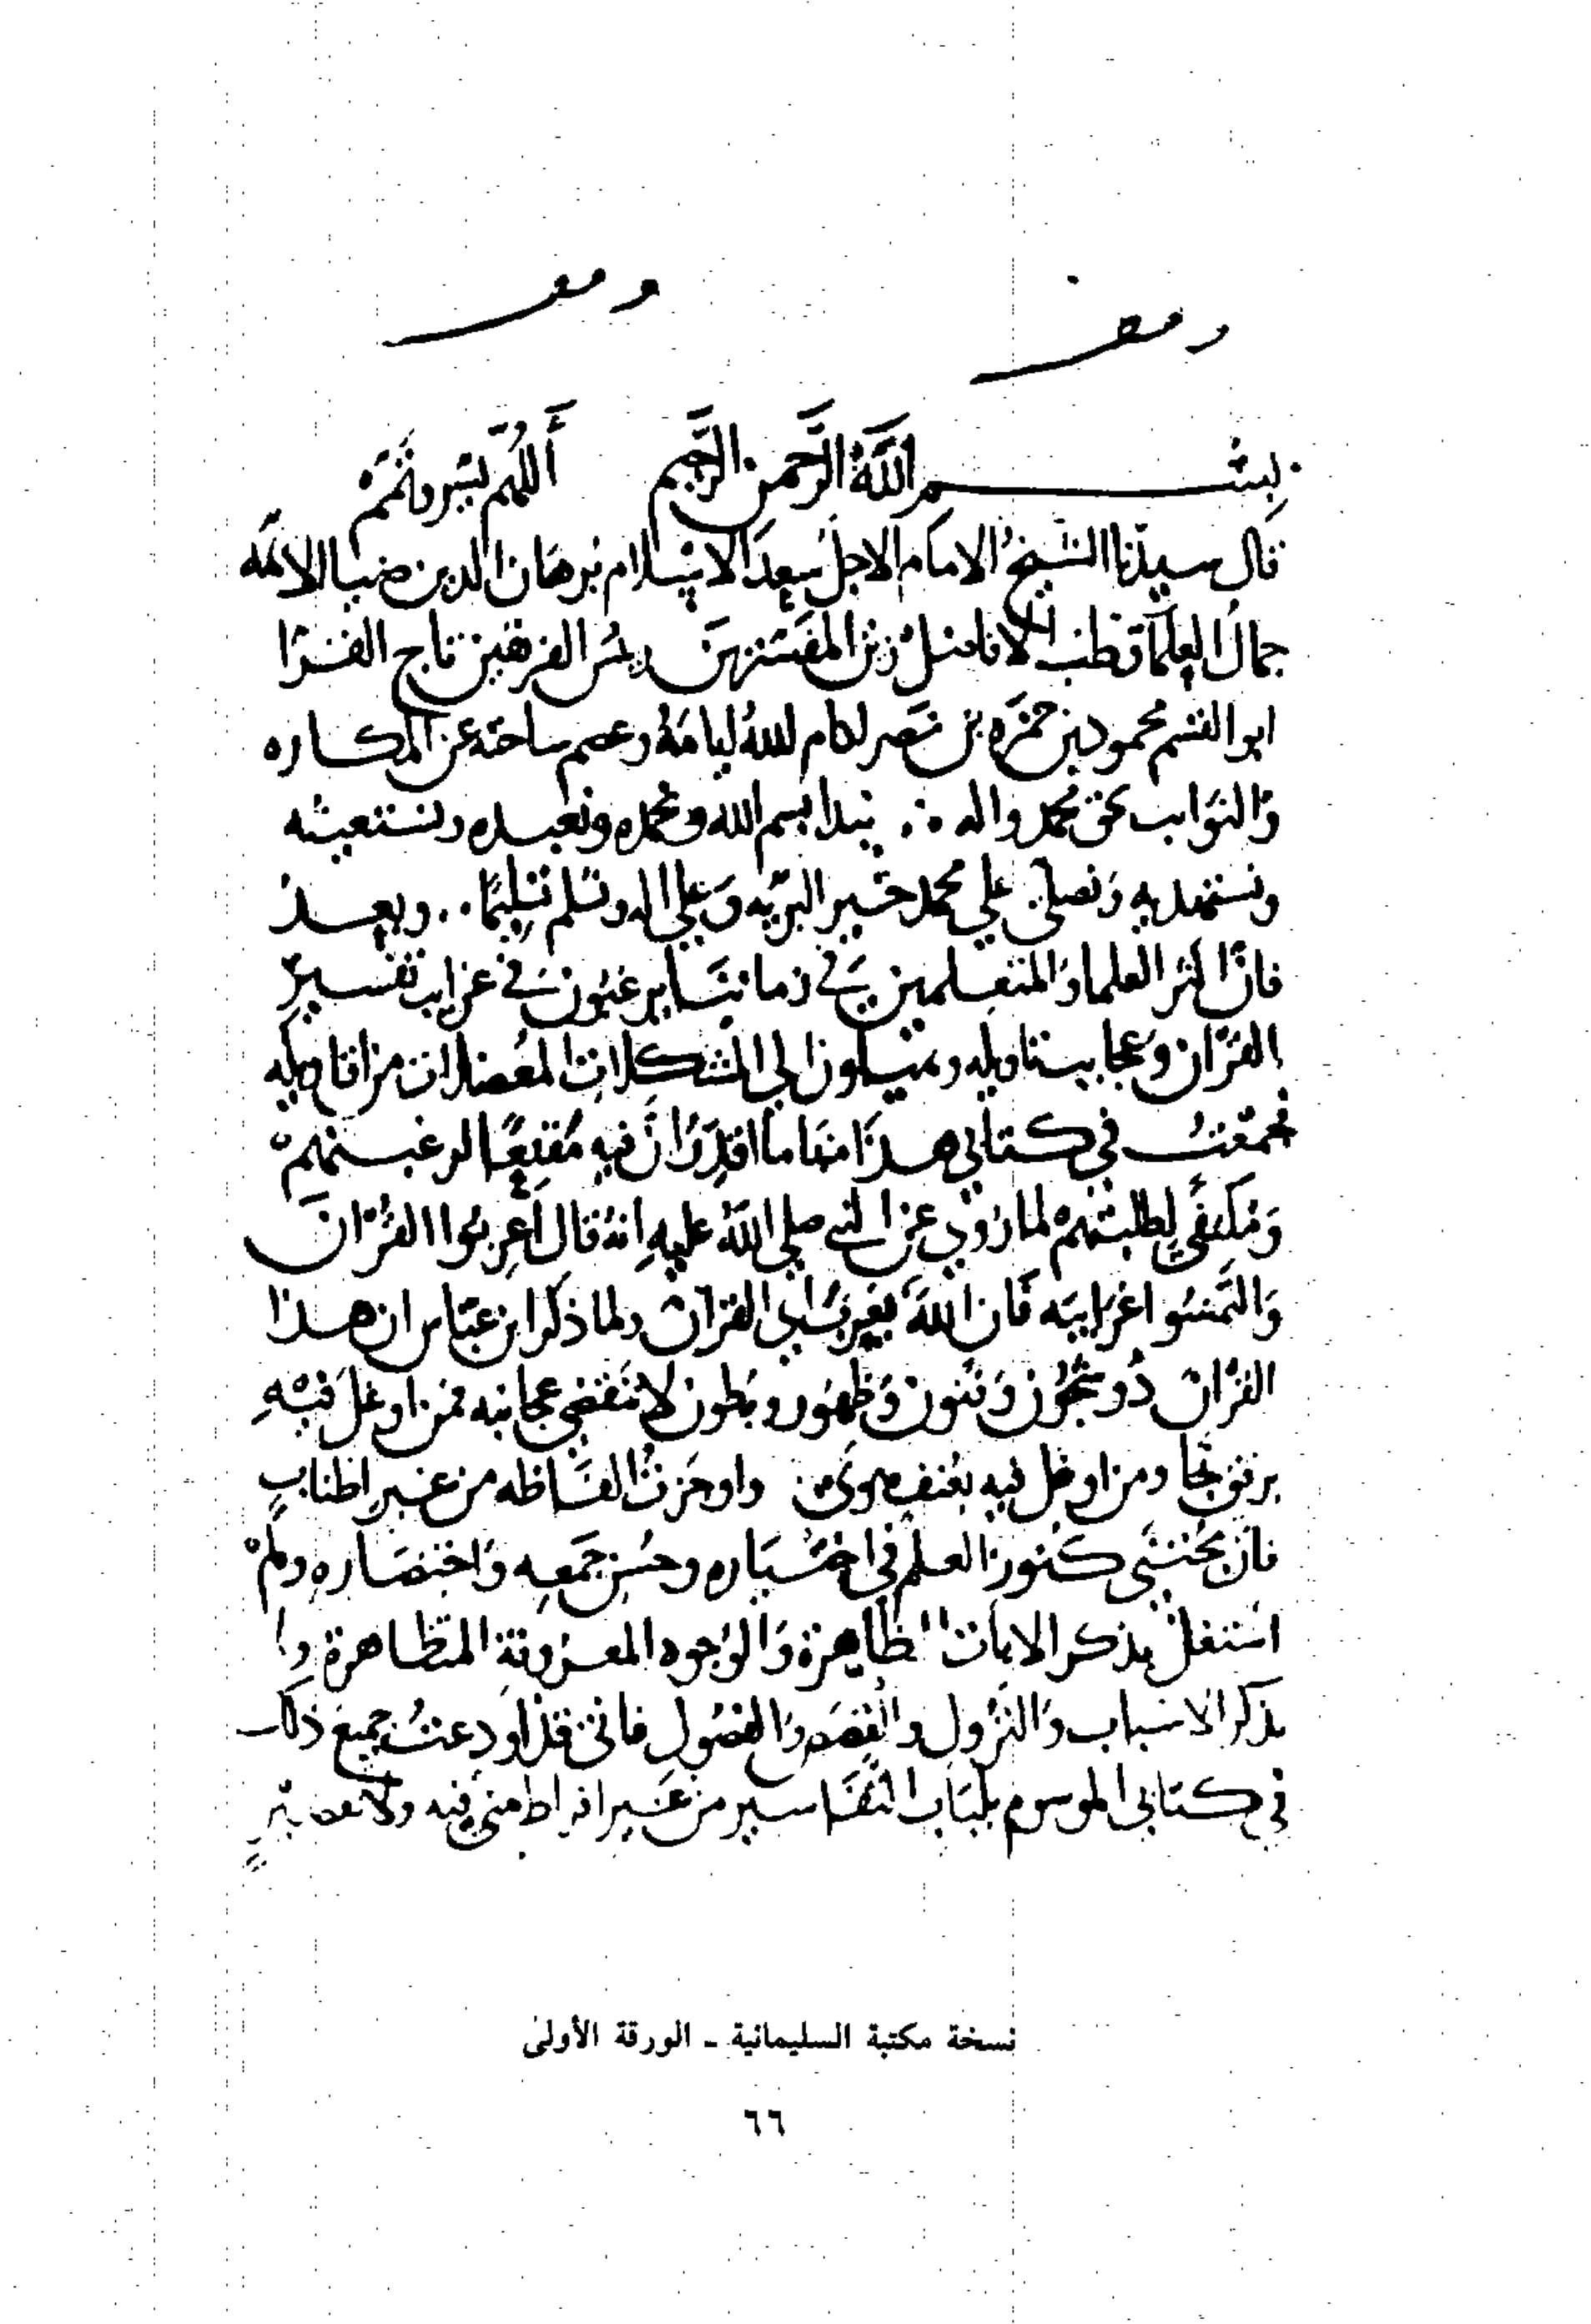 وقف
وقف
بسم الله الرحمن الرحيم اللهم يسر وتمم
قال سيدنا الشيخ الامام الاجل سعد الاسلام برهان الدين ضيا الائمه
جمال العلما قطب الافاضل زين المفسرين رئيس الفريقين تاج القرا
ابو القسم محمود بن حمزه بن نصر ادام الله ايامه وعصم ساحته عن المكاره
والنوايب بحق محمد واله نبدا بسم الله ونحمده ونعبده ونستعينه
ونستهديه ونصلي علي محمد خير البريه وعلي اله ونسلم تسليما وبعد
فان اكثر العلما والمتعلمين في زماننا يرغبون في غرايب تفسير
القران وعجايب تاويله ويميلون الي المشكلات المعضلات من اقاويله
فجمعت في كتابي هذا منها ما اقدر ان فيه مقنعا لرغبتهم
ومكتفي لطلبتهم لما روي عن النبي صلي الله عليه انه قال اعربوا القران
والتمسوا غرايبه فان الله يحب ان القران ولما ذكر ابن عباس ان هذا
القران ذو شجون وفنون وظهور وبطون لا تنقضي عجائبه فمن اوغل فيه
برفق نجا ومن اوغل فيه بعنف هوى واوجزت الفاظه من غير اطناب
فان مجتني كنوز العلم في اختياره وحسن جمعه واختصاره ولم
اشتغل بذكر الايات الظاهرة والوجوه المعروفة المتظاهرة ولا
بذكر الاسباب والنزول والقصص والفصول فاني قد اودعت جميع ذلك
في كتابي الموسوم بلباب التفاسير من غير افراط مني فيه ولا تقصير
نسخة مكتبة السليمانية - الورقة الأولى
٦٦